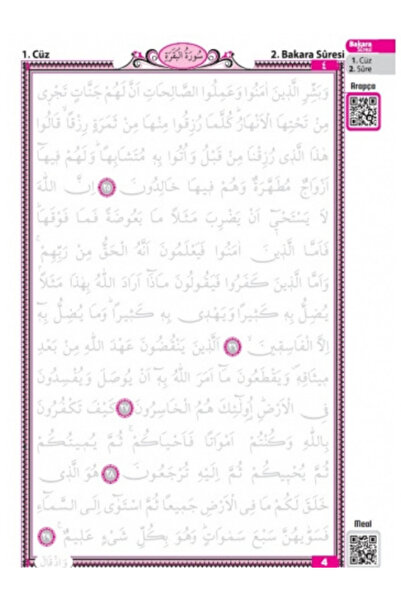 1. Cüz
سُورَةُ الْبَقَرَةِ
2. Bakara Sûresi
٤
Bakara
Sûresi
1. Cüz
2. Sûre
Arapça
وَبَشِّرِ الَّذِينَ اٰمَنُوا وَعَمِلُوا الصَّالِحَاتِ اَنَّ لَهُمْ جَنَّاتٍ تَجْرِى
مِنْ تَحْتِهَا الْاَنْهَارُ كُلَّمَا رُزِقُوا مِنْهَا مِنْ ثَمَرَةٍ رِزْقًا قَالُوا
هٰذَا الَّذِى رُزِقْنَا مِنْ قَبْلُ وَاُتُوا بِهِ مُتَشَابِهًا وَلَهُمْ فِيهَا
اَزْوَاجٌ مُطَهَّرَةٌ وَهُمْ فِيهَا خَالِدُونَ ٢٥ اِنَّ اللّٰهَ
لَا يَسْتَحْيِى اَنْ يَضْرِبَ مَثَلًا مَا بَعُوضَةً فَمَا فَوْقَهَا
فَاَمَّا الَّذِينَ اٰمَنُوا فَيَعْلَمُونَ اَنَّهُ الْحَقُّ مِنْ رَبِّهِمْ
وَاَمَّا الَّذِينَ كَفَرُوا فَيَقُولُونَ مَاذَا اَرَادَ اللّٰهُ بِهٰذَا مَثَلًا
يُضِلُّ بِهِ كَثِيرًا وَيَهْدِى بِهِ كَثِيرًا وَمَا يُضِلُّ بِهِ
اِلَّا الْفَاسِقِينَ ٢٦ اَلَّذِينَ يَنْقُضُونَ عَهْدَ اللّٰهِ مِنْ بَعْدِ
مِيثَاقِهِ وَيَقْطَعُونَ مَا اَمَرَ اللّٰهُ بِهِ اَنْ يُوصَلَ وَيُفْسِدُونَ
فِى الْاَرْضِ اُولٰئِكَ هُمُ الْخَاسِرُونَ ٢٧ كَيْفَ تَكْفُرُونَ
بِاللّٰهِ وَكُنْتُمْ اَمْوَاتًا فَاَحْيَاكُمْ ثُمَّ يُمِيتُكُمْ
ثُمَّ يُحْيِيكُمْ ثُمَّ اِلَيْهِ تُرْجَعُونَ ٢٨ هُوَ الَّذِى
خَلَقَ لَكُمْ مَا فِى الْاَرْضِ جَمِيعًا ثُمَّ اسْتَوٰى اِلَى السَّمَاءِ
فَسَوّٰيهُنَّ سَبْعَ سَمٰوَاتٍ وَهُوَ بِكُلِّ شَىْءٍ عَلِيمٌ ٢٩
Meal
وَاِذْ قَالَ
4